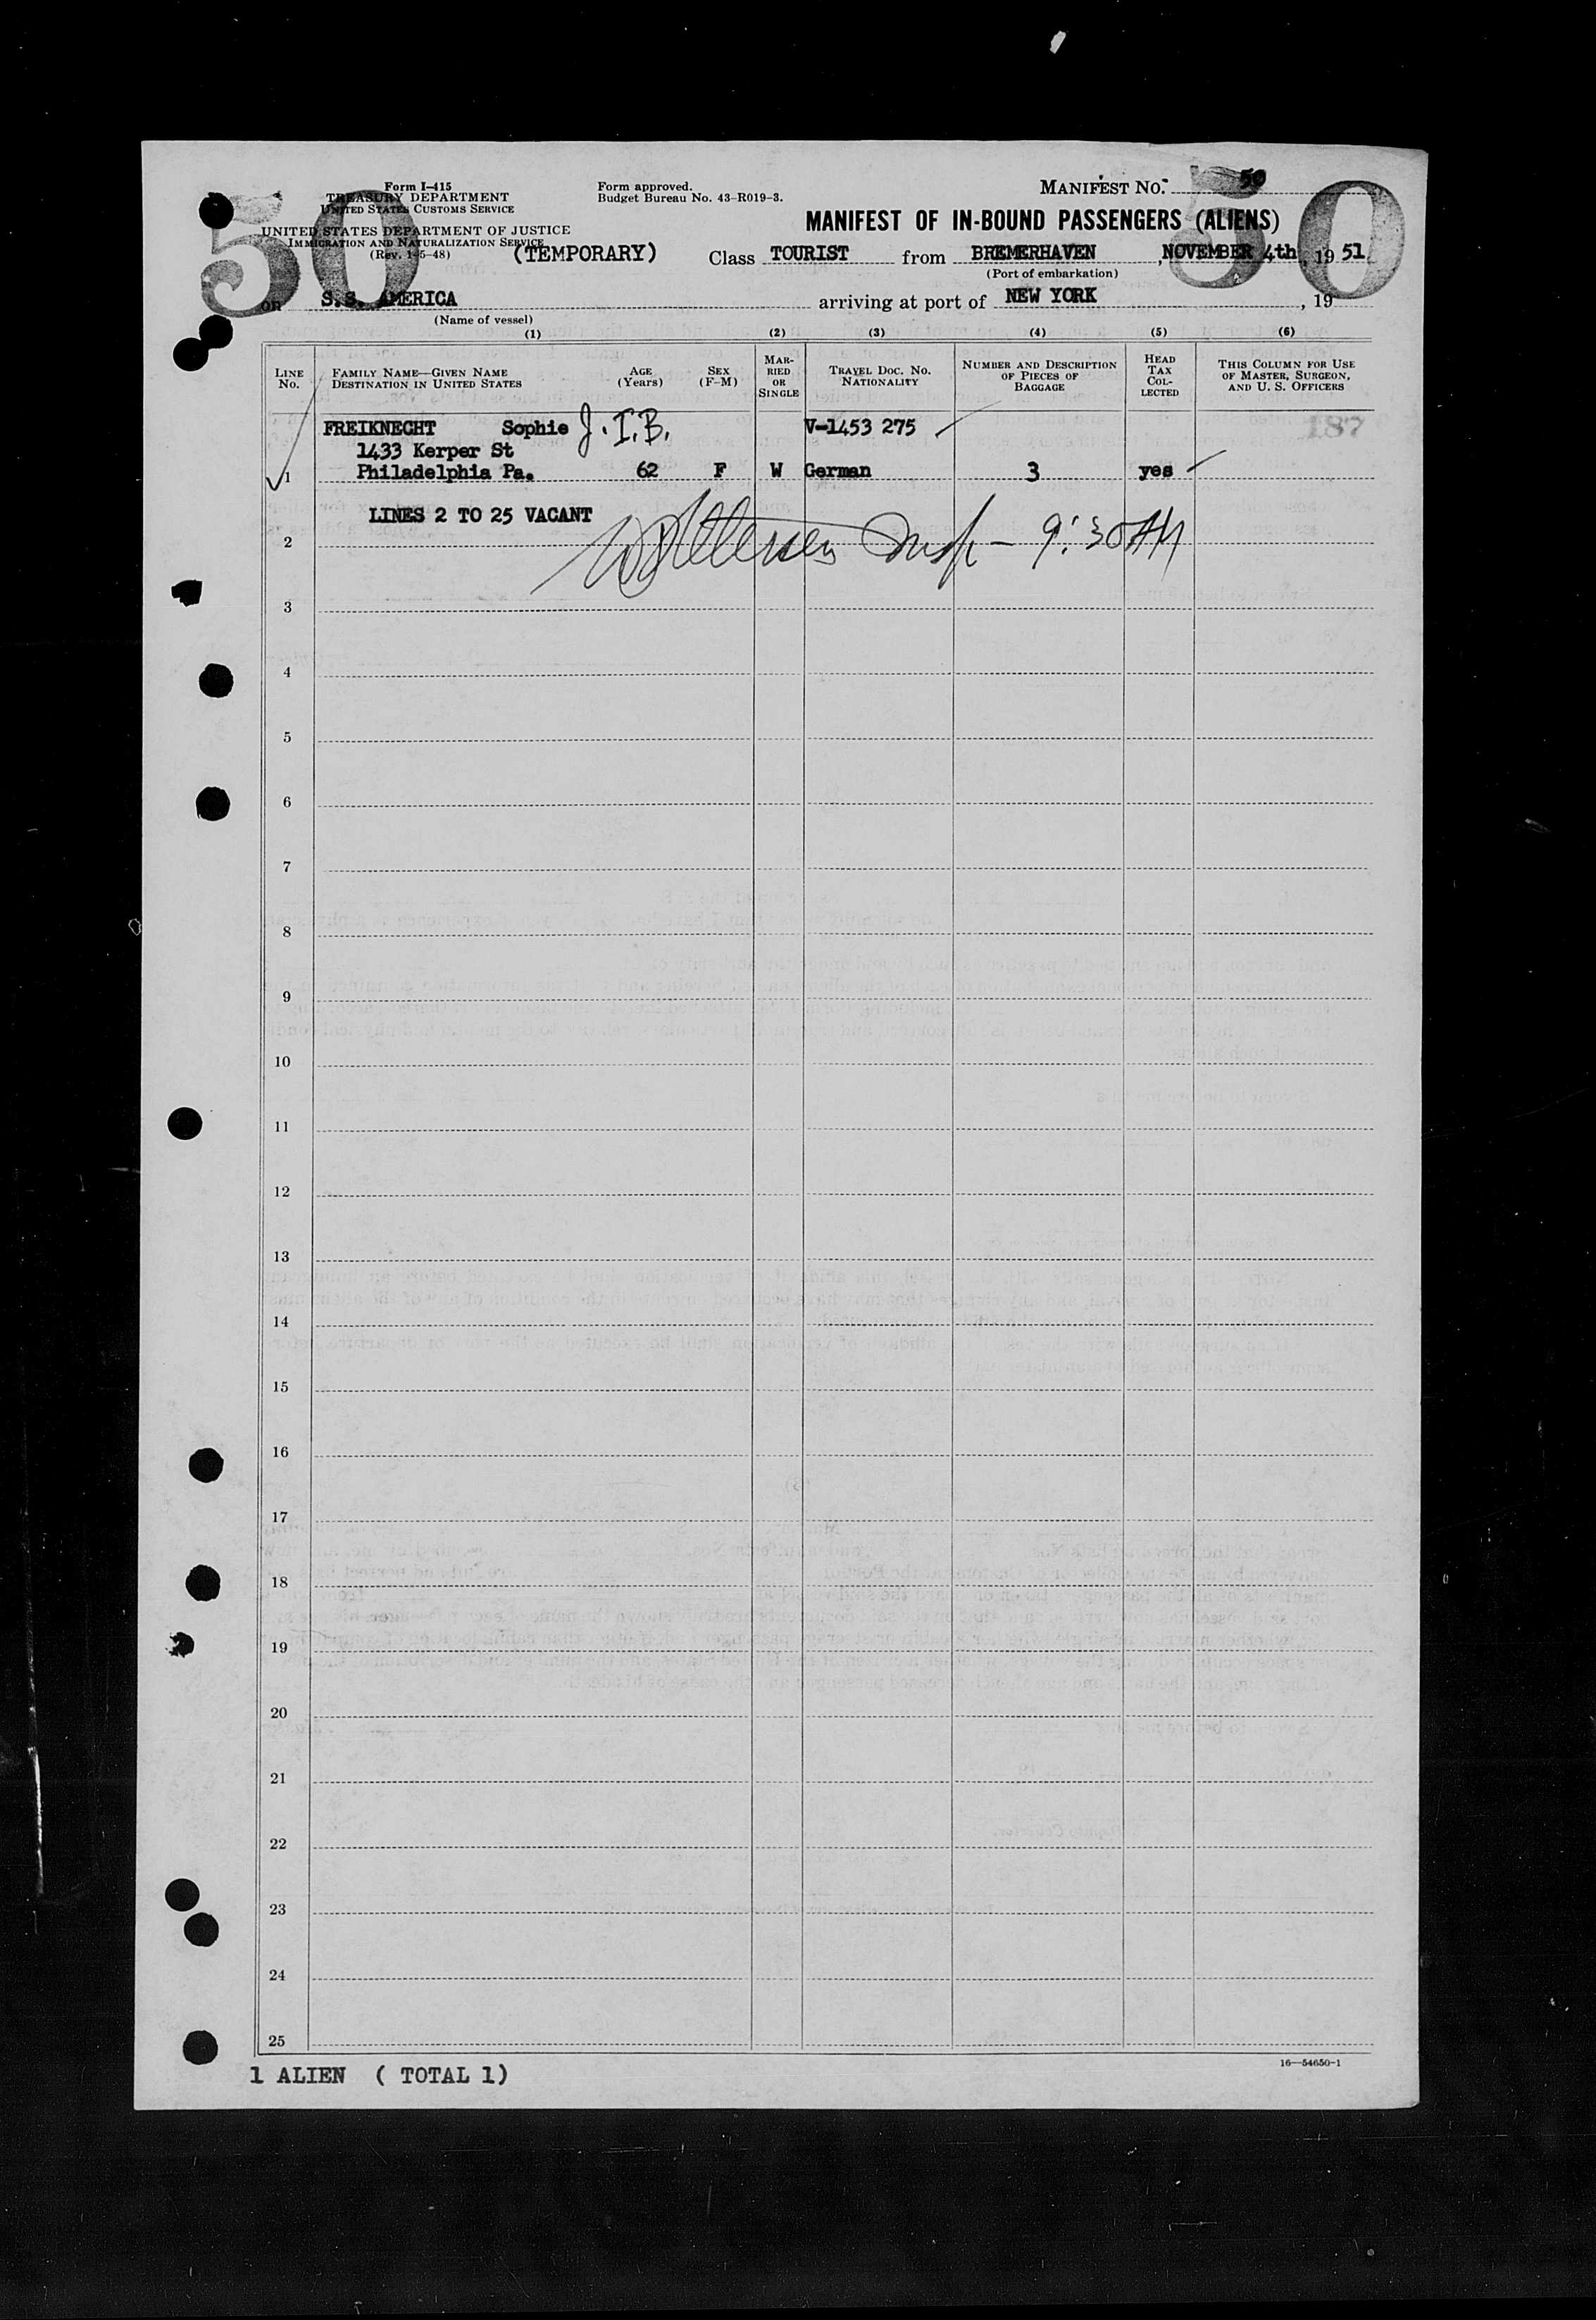 50
50
Form I-415
TREASURY DEPARTMENT
UNITED STATES CUSTOMS SERVICE
UNITED STATES DEPARTMENT OF JUSTICE
IMMIGRATION AND NATURALIZATION SERVICE
(Rev. 1-5-48)
(TEMPORARY)
Form approved.
Budget Bureau No. 43-R019-3.
MANIFEST No. 50
MANIFEST OF IN-BOUND PASSENGERS (ALIENS)
Class TOURIST from BREMERHAVEN, NOVEMBER 4th, 19 51
(Port of embarkation)
on S.S. AMERICA arriving at port of NEW YORK, 19
(Name of vessel)
(1) (2) (3) (4) (5) (6)
LINE No. FAMILY NAME—GIVEN NAME DESTINATION IN UNITED STATES AGE (Years) SEX (F-M) MARRIED OR SINGLE TRAVEL DOC. No. NATIONALITY NUMBER AND DESCRIPTION OF PIECES OF BAGGAGE HEAD TAX COLLECTED THIS COLUMN FOR USE OF MASTER, SURGEON, AND U. S. OFFICERS
FREIKNECHT Sophie J.I.B. V-1453 275 187
1433 Kerper St
1 Philadelphia Pa. 62 F W German 3 yes
LINES 2 TO 25 VACANT
2 Insp - 9:30 AM
3
4
5
6
7
8
9
10
11
12
13
14
15
16
17
18
19
20
21
22
23
24
25
16—54650-1
1 ALIEN ( TOTAL 1)